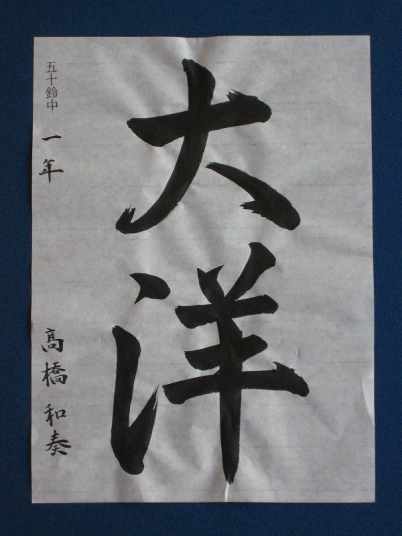 大洋
五十鈴中
一年
髙橋和奏